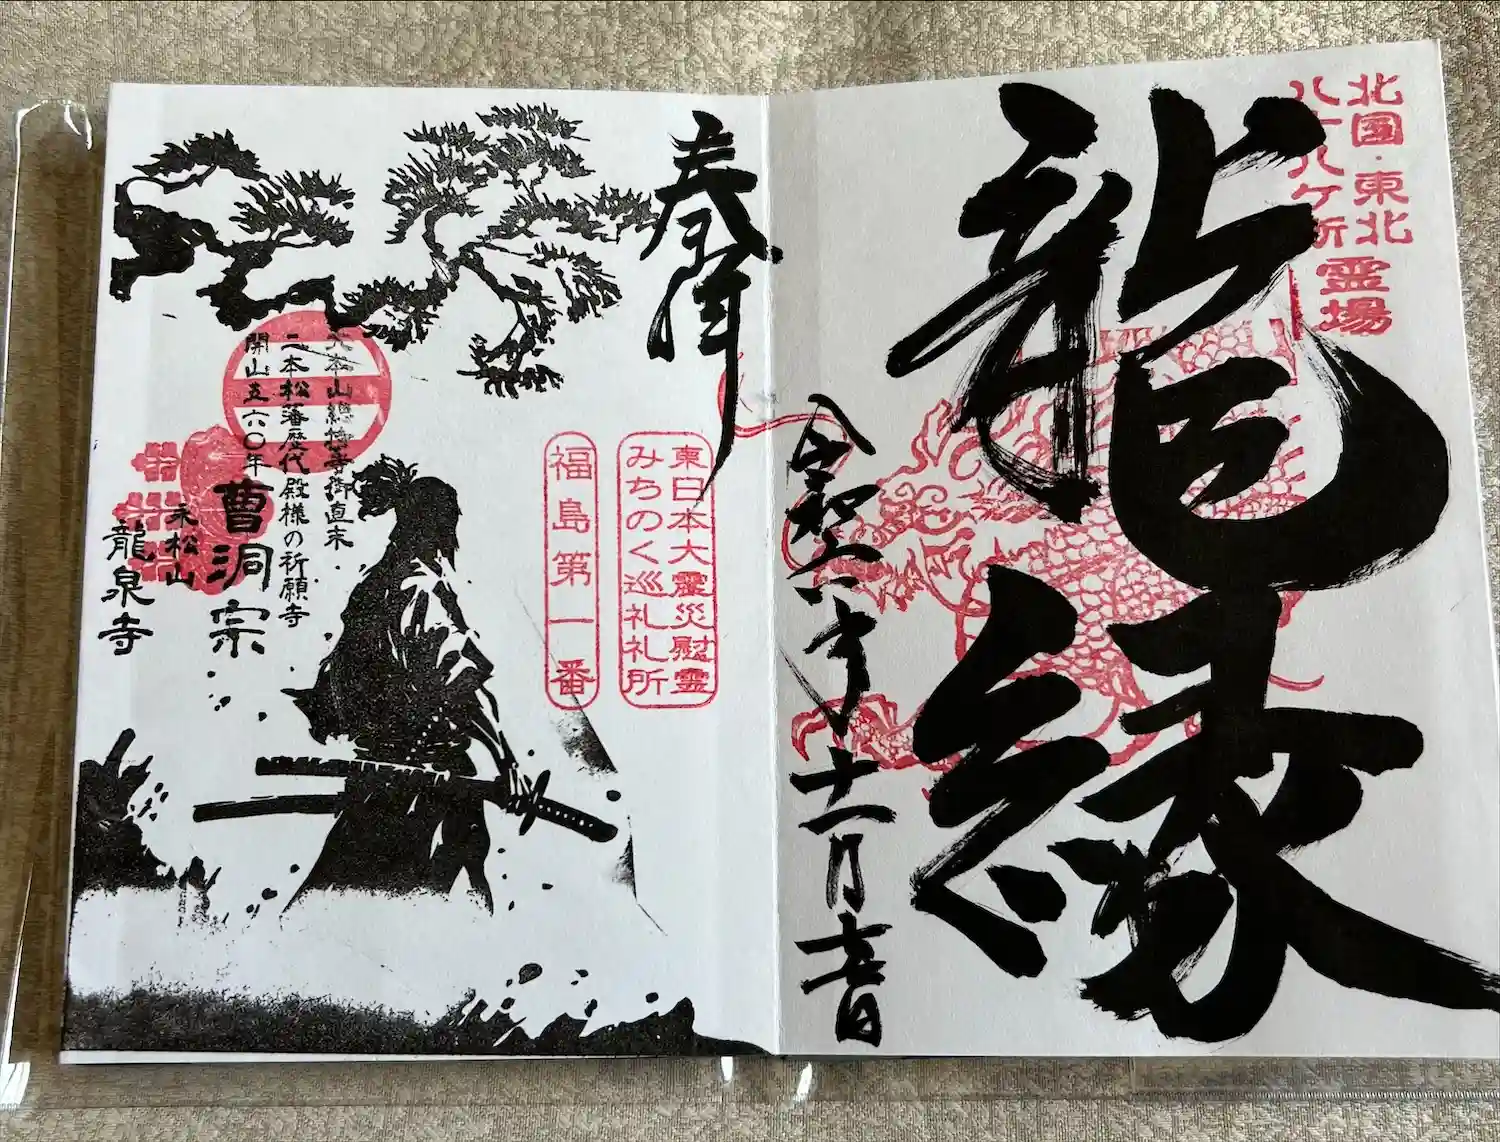 北国・東北
八十八ヶ所
霊場
龍縁
令和六年十一月
奉拝
東日本大震災慰霊
みちのく巡礼札所
福島第一番
大本山總持寺御直末
二本松藩歴代殿様の祈願寺
開山五六〇年
曹洞宗
永松山
龍泉寺